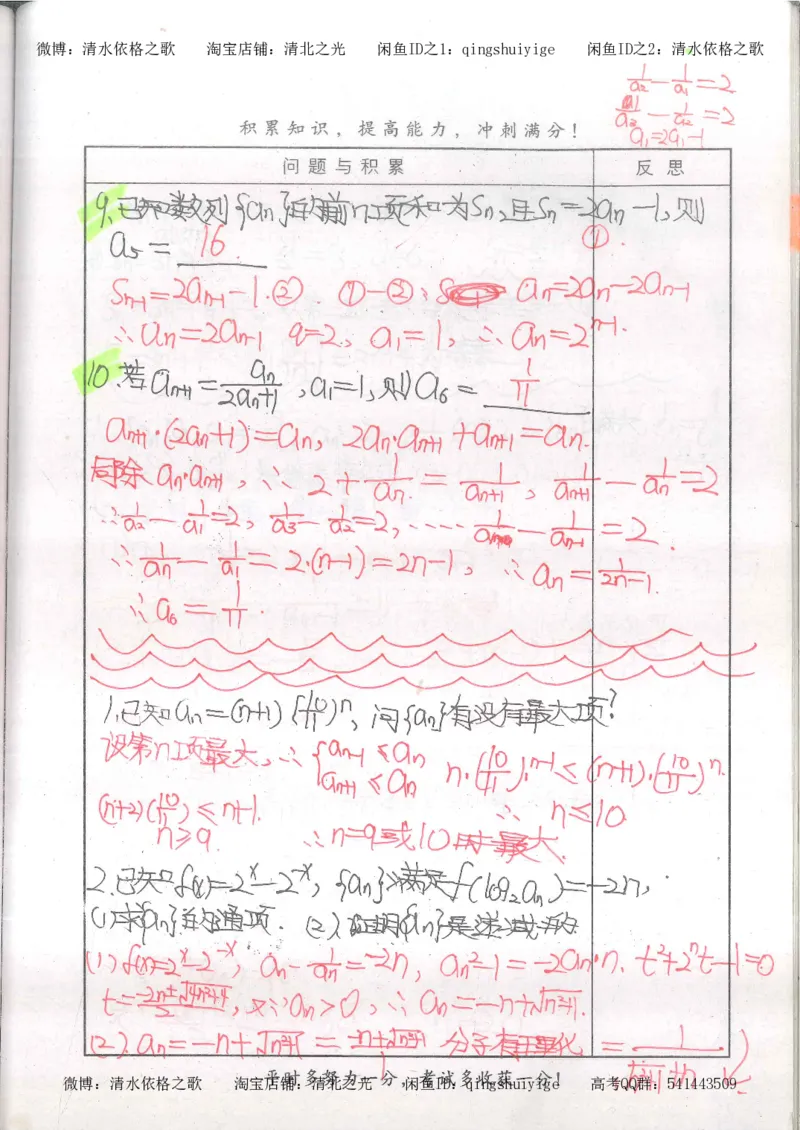 微博：清水依格之歌 淘宝店铺：清北之光 闲鱼ID之1：qingshuiyige 闲鱼ID之2：清水依格之歌
1/a₂ − 1/a₁ = 2
积累知识，提高能力，冲刺满分！
问题与积累 反思
9. 已知数列{aₙ}的前n项和为Sₙ,且Sₙ=2aₙ−1,则 ①.
a₅= 16
Sₙ₋₁=2aₙ₋₁−1.② ①−②: aₙ=2aₙ−2aₙ₋₁
∴aₙ=2aₙ₋₁ q=2, a₁=1, ∴aₙ=2ⁿ⁻¹.
10. 若aₙ₊₁=aₙ/(2aₙ+1), a₁=1,则a₆= 1/11
aₙ₊₁·(2aₙ+1)=aₙ, 2aₙ·aₙ₊₁+aₙ₊₁=aₙ.
同除aₙ·aₙ₊₁, ∴2+1/aₙ=1/aₙ₊₁, 1/aₙ₊₁−1/aₙ=2
∴1/a₂−1/a₁=2, 1/a₃−1/a₂=2, ···· 1/aₙ−1/aₙ₋₁=2.
∴1/aₙ−1/a₁=2·(n−1)=2n−1, ∴aₙ=1/(2n−1).
∴a₆=1/11.
1. 已知aₙ=(n+1)(10/11)ⁿ, 问{aₙ}有没有最大项?
设第n项最大, ∴{aₙ₋₁≤aₙ
aₙ₊₁≤aₙ n·(10/11)ⁿ⁻¹≤(n+1)·(10/11)ⁿ.
(n+2)(10/11)≤n+1. ∴n≤10
n≥9. ∴n=9或10时最大.
2. 已知f(x)=2ˣ−2⁻ˣ, {aₙ}满足f(log₂aₙ)=−2n,
(1)求{aₙ}的通项. (2)证明{aₙ}是递减的
(1)f(x)=2ˣ−2⁻ˣ, aₙ−1/aₙ=−2n, aₙ²−1=−2aₙ·n. t²+2ⁿt−1=0
t=(−2n±√(4n²+4))/2, 又∵aₙ>0, ∴aₙ=−n+√(n²+1).
(2)aₙ=−n+√(n²+1)=(−n+√(n²+1))/1 分子有理化 =1/(√(n²+1)+n)
平时多努力一分，考试多收获一分！
微博：清水依格之歌 淘宝店铺：清北之光 闲鱼ID：qingshuiyige 高考QQ群：541443509